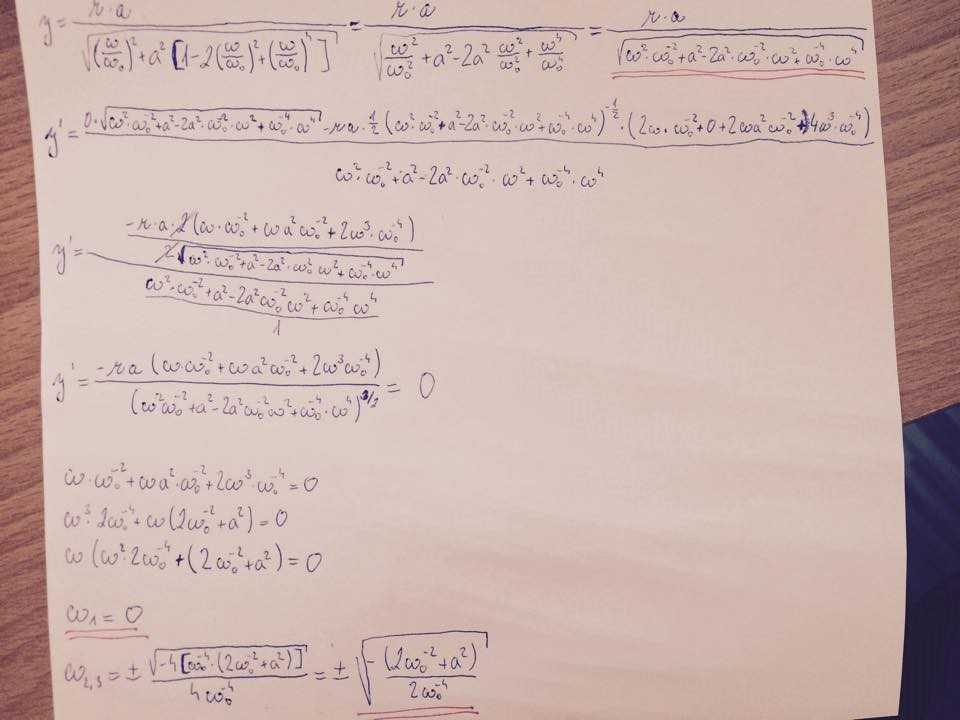 y = r·a / √((ω/ω₀)² + a² [1 - 2(ω/ω₀)² + (ω/ω₀)⁴]) = r·a / √(ω²/ω₀² + a² - 2a² ω²/ω₀² + ω⁴/ω₀⁴) = r·a / √(ω²·ω₀⁻² + a² - 2a²·ω₀⁻²·ω² + ω₀⁻⁴·ω⁴)
y' = (0·√(ω²·ω₀⁻² + a² - 2a²·ω₀⁻²·ω² + ω₀⁻⁴·ω⁴) - r·a·½ (ω²·ω₀⁻² + a² - 2a²·ω₀⁻²·ω² + ω₀⁻⁴·ω⁴)^(-½) · (2ω·ω₀⁻² + 0 + 2ωa²ω₀⁻² + 4ω³·ω₀⁻⁴)) / (ω²·ω₀⁻² + a² - 2a²·ω₀⁻²·ω² + ω₀⁻⁴·ω⁴)
y' = (-r·a·2(ω·ω₀⁻² + ωa²ω₀⁻² + 2ω³·ω₀⁻⁴) / 2√(ω²·ω₀⁻² + a² - 2a²·ω₀²ω² + ω₀⁻⁴·ω⁴)) / ((ω²·ω₀⁻² + a² - 2a²ω₀⁻²ω² + ω₀⁻⁴ω⁴) / 1)
y' = -ra (ωω₀⁻² + ωa²ω₀⁻² + 2ω³ω₀⁻⁴) / (ω²ω₀⁻² + a² - 2a²ω₀⁻²ω² + ω₀⁻⁴·ω⁴)^(3/2) = 0
ω·ω₀⁻² + ωa²·ω₀⁻² + 2ω³·ω₀⁻⁴ = 0
ω³·2ω₀⁻⁴ + ω(2ω₀⁻² + a²) = 0
ω (ω²·2ω₀⁻⁴ + (2ω₀⁻² + a²) = 0
ω₁ = 0
ω₂,₃ = ± √(-4[ω₀⁻⁴·(2ω₀⁻² + a²)]) / 4ω₀⁻⁴ = ± √(-(2ω₀⁻² + a²) / 2ω₀⁻⁴)